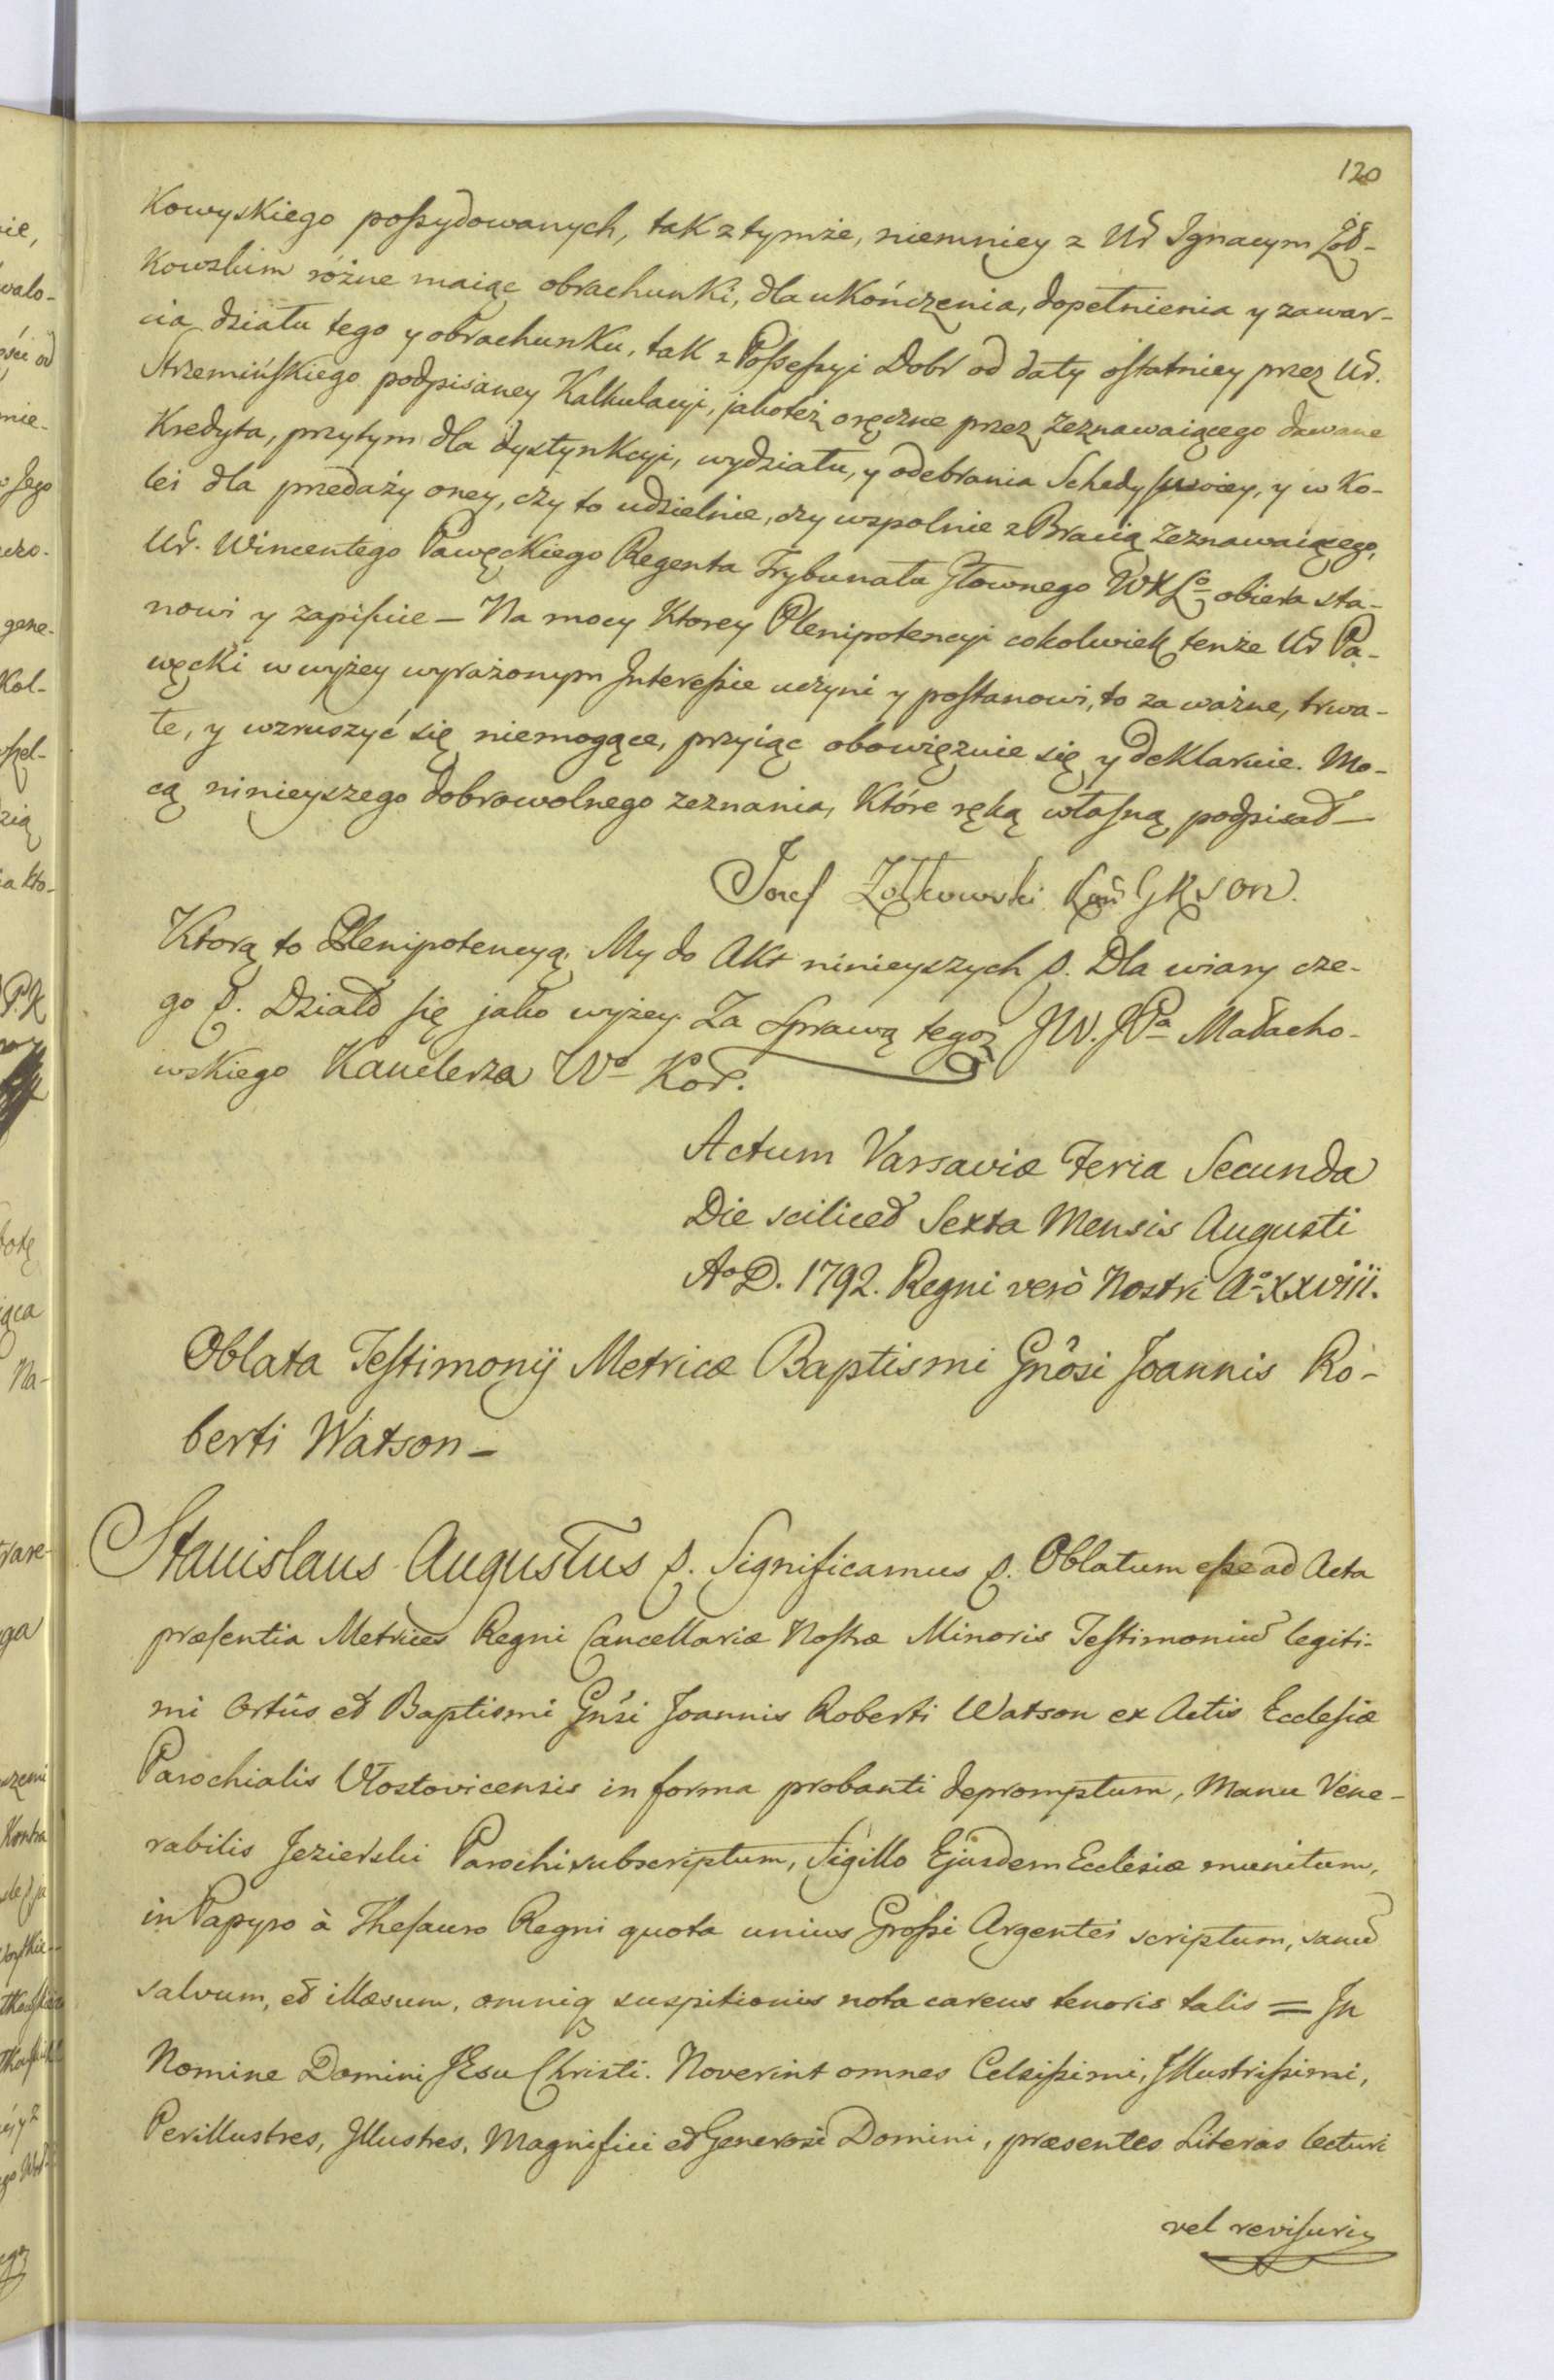 120
Kowyskiego possydowanych, tak z tymże, niemniey z Ur Ignacym Żoł-
kowskim różne maiąc obrachunki, dla ukończenia, dopełnienia y zawar-
cia działu tego y obrachunku, tak z Possessyi Dobr od daty ostatniey przez Ur.
Strzemińskiego podpisaney Kalkulacyi, jakoteż oręczne przez zeznawaiącego dawane
Kredyta, przytym dla dystynkcyi, wydziału, y odebrania Schedy swoiey, y w Ko-
lei dla przedaży oney, czy to udzielnie, czy wspolnie z Bracią zeznawaiącego,
Ur. Wincentego Pawęckiego Regenta Trybunału Głownego WXLo obiera sta-
nowi y zapisuie – Na mocy Ktorey Plenipotencyi cokolwiek tenże Ur Pa-
węcki w wyżey wyrażonym Interessie uczyni y postanowi, to za ważne, trwa-
łe, y wzruszyć się niemogące, przyiąc obowięzuie się y deklaruie. Mo-
cą ninieyszego dobrowolnego zeznania, Które ręką własną podpisał –
Jozef Żołkowski
Ktorą to Plenipotencyą. My do Akt ninieyszych p. Dla wiary cze-
go p. Dział się jako wyżey. Za Sprawą tegoż JW. JPa Małacho-
wskiego Kanclerza Wo Kor.
Actum Varsaviæ Feria Secunda
Die scilicet Sexta Mensis Augusti
Ao D. 1792. Regni verò Nostri Ao XXVIII.
Oblata Testimonij Metricæ Baptismi Gnôsi Joannis Ro-
berti Watson –
Stanislaus Augustus p. Significamus p. Oblatum esse ad Acta
præsentia Metrices Regni Cancellariæ Nostræ Minoris Testimoniu legiti-
mi Ortûs et Baptismi Gnsi Joannis Roberti Watson ex Actis Ecclesiæ
Parochialis Włostovicensis in forma probanti depromptum, Manu Vene-
rabilis Jezierski Parochi subscriptum, Sigillo Ejusdem Ecclesiæ munitum,
in Papyro à Thesauro Regni quota unius Grossi Argentei scriptum, sanu
salvum, et illæsum, omniq suspitionis nota carens tenoris talis = In
Nomine Domini JEsu Christi. Noverint omnes Celsissimi, Illustrissimi,
Perillustres, Illustres, Magnifici et Generosi Domini, præsentes Literas lecturi
vel revisuri